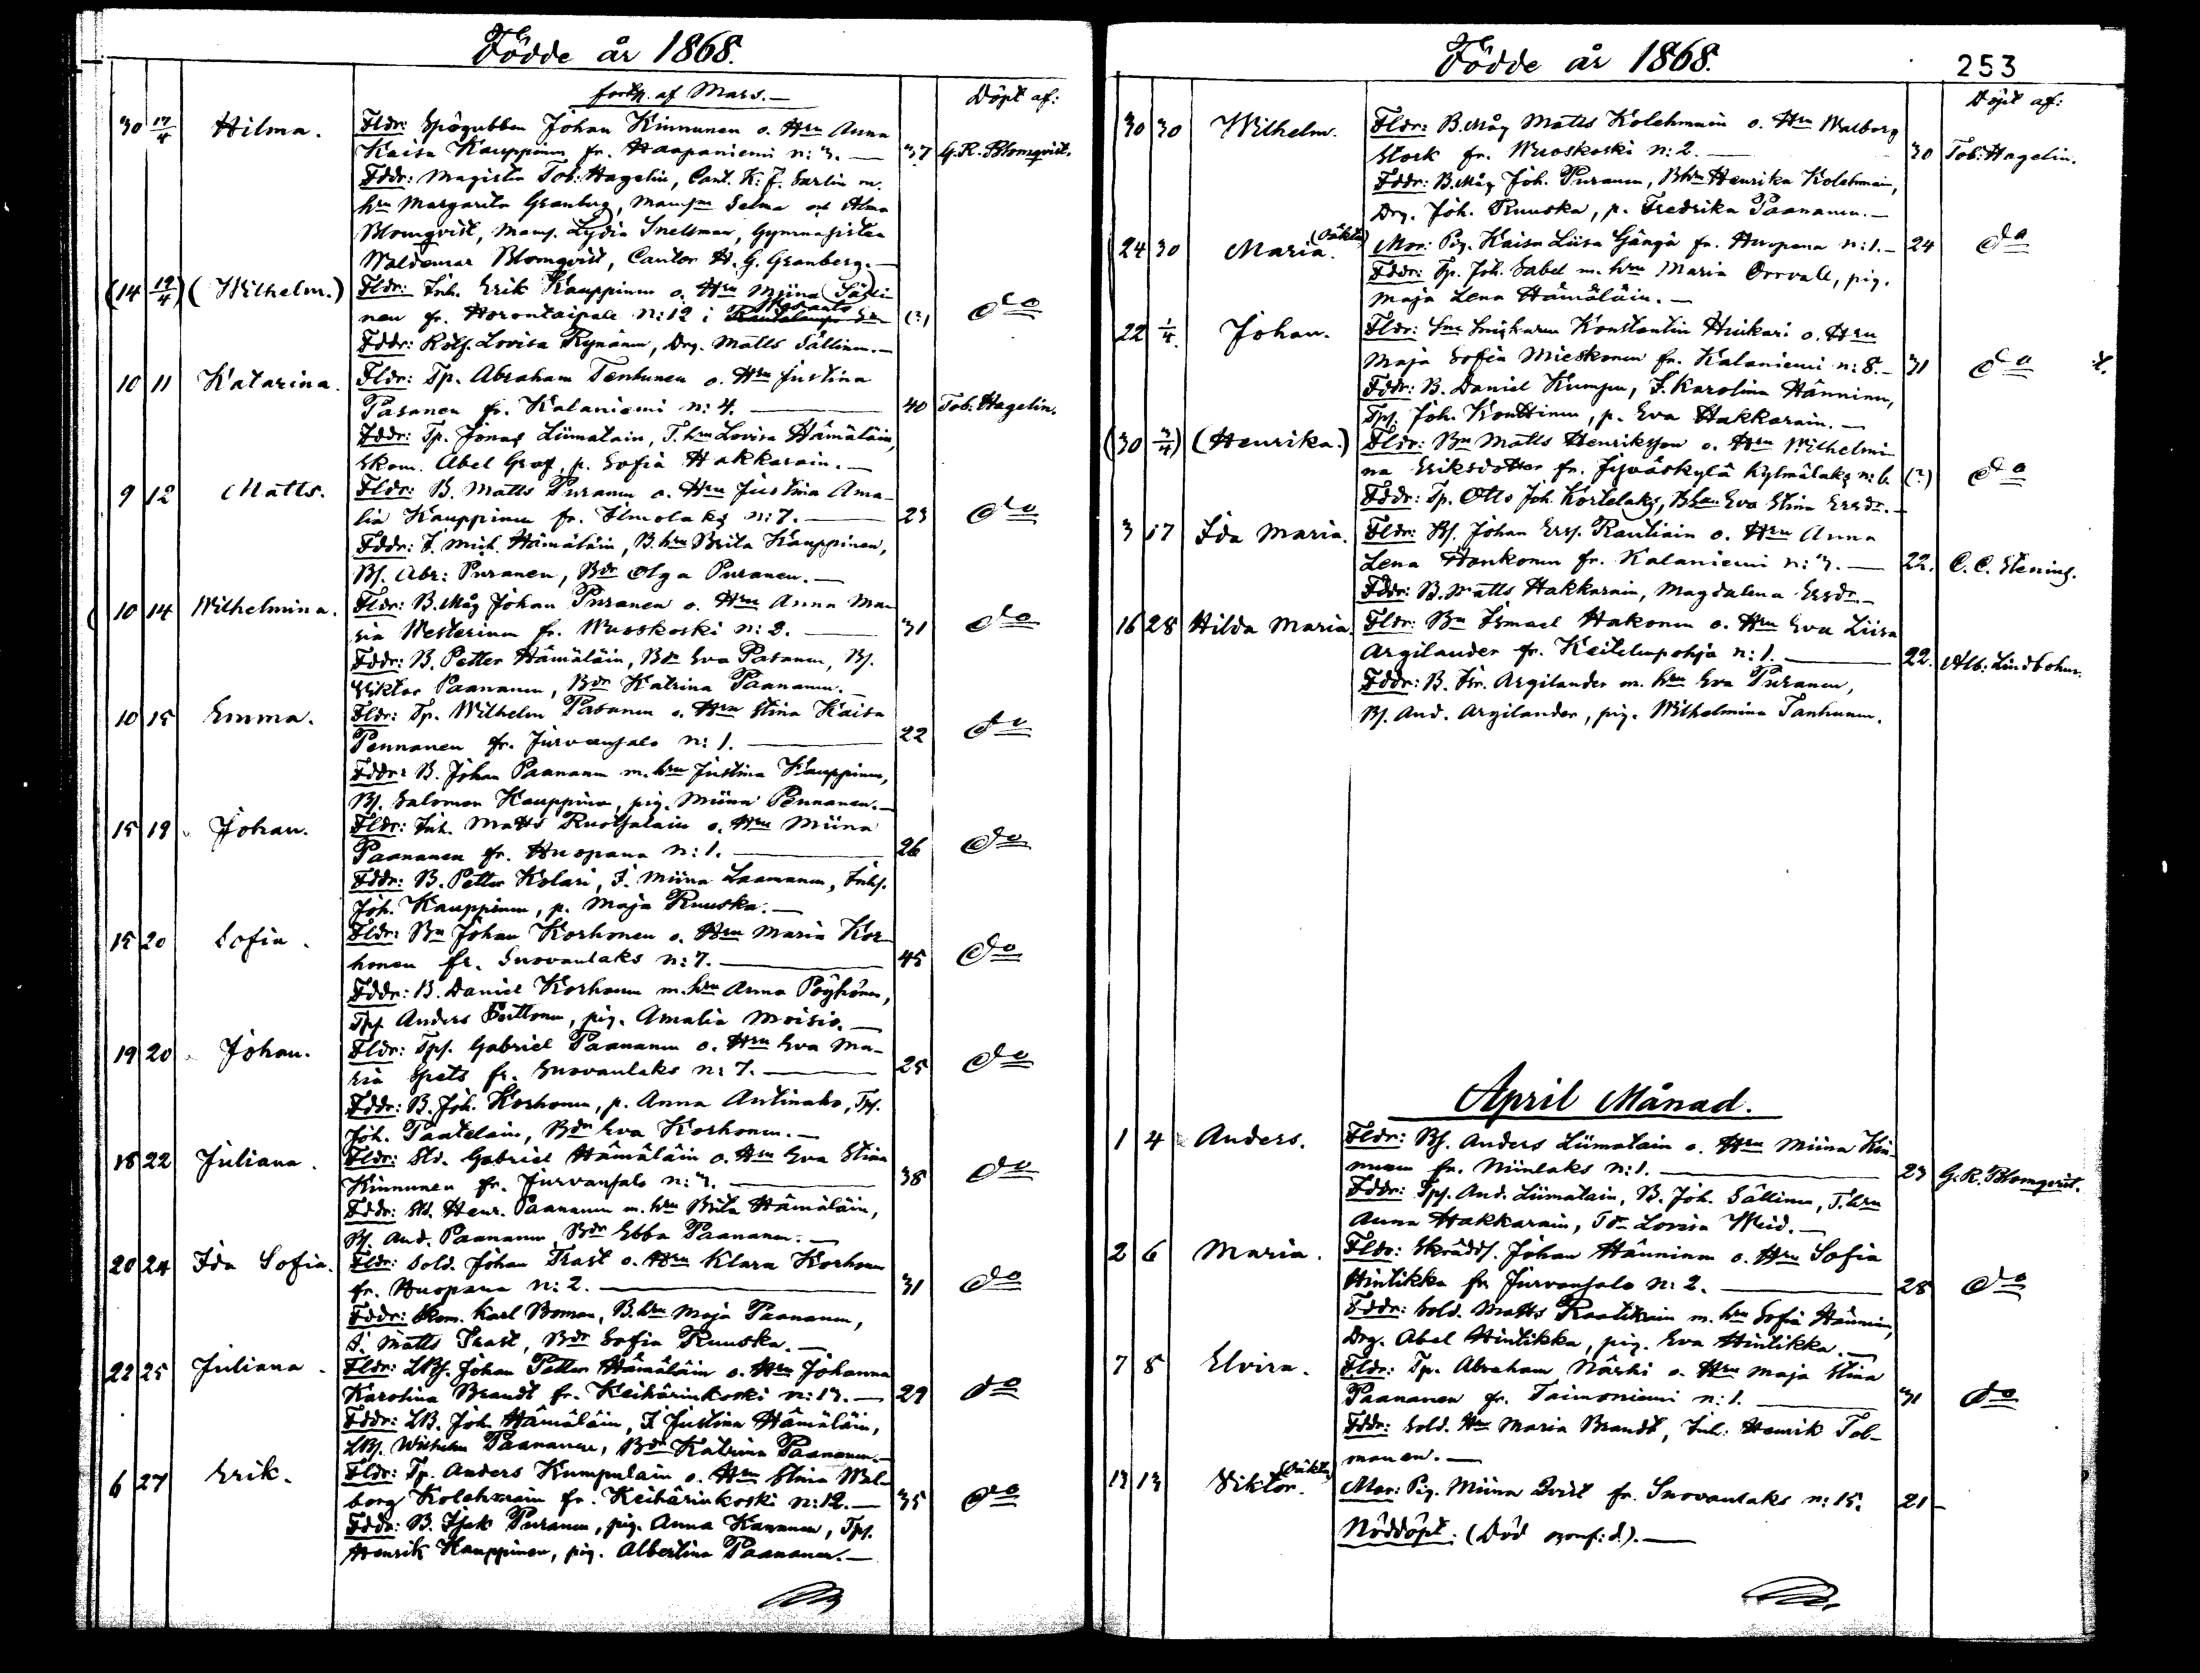 Födde år 1868.
forts. af Mars.— Döpt af:
30 17/4 Hilma. Fldr: Johan Kinnunen o. Hru Anna
Kaisa Kauppinen fr. Haapaniemi n: 3. — 37 G. R. Blomqvist.
Fddr: Magister Tob: Hagelin, Cant. K. F. Sarlin m.
hru Margareta Granberg, Mamsell Selma och Alma
Blomqvist, Mams. Lydia Snellman, Gymnasisten
Waldemar Blomqvist, Cantor H. G. Granberg.—
(14 19/4) (Wilhelm.) Fldr: Inh. Erik Kauppinen o. Hru Miina Sälli-
nen fr. Horontaipale n: 12 i (?) do
Fddr: Lovisa Rynänen, Drg. Matts Sällinen.—
10 11 Katarina. Fldr: Tp. Abraham Tenhunen o. Hru Justina
Pasanen fr. Kalaniemi n: 4. — 40 Tob: Hagelin.
Fddr: Tp. Jonas Liimatain, T. hru Lovisa Hämäläin,
Ekom. Abel Graf, p. Sofia Hakkarain.—
9 12 Matts. Fldr: B. Matts Puranen o. Hru Justina Ama-
lia Kauppinen fr. Ilmolaks n: 7. — 23 do
Fddr: I. Mich. Hämäläin, B. hru Brita Kauppinen,
Bs. Abr: Puranen, Bdr Olga Puranen.—
10 14 Wilhelmina. Fldr: B. Måg Johan Puranen o. Hru Anna Ma-
ria Westerinen fr. Wuoskoski n: 2. — 31 do
Fddr: B. Petter Hämäläin, Bdr Eva Pasanen, Bs.
Viktor Paananen, Bdr Katrina Paananen.—
10 15 Emma. Fldr: Tp. Wilhelm Pasanen o. Hru Stina Kaisa
Pennanen fr. Jurvansalo n: 1. — 22 do
Fddr: B. Johan Paananen m. hru Justina Kauppinen,
Bs. Salomon Kauppinen, pig. Miina Pennanen.—
15 19 Johan. Fldr: Inh. Matts Ruotsalain o. Hru Miina
Paananen fr. Huopana n: 1. — 26 do
Fddr: B. Petter Kolari, I. Miina Laamanen, Inhs.
Joh. Kauppinen, p. Maja Ruuska.—
15 20 Sofia. Fldr: Bn Johan Korhonen o. Hru Maria Kor-
honen fr. Suovanlaks n: 7. — 45 do
Fddr: B. Daniel Korhonen m. hru Anna Pöyhönen,
Tps. Anders, pig. Amalia Moisio.—
19 20 Johan. Fldr: Tps. Gabriel Paananen o. Hru Eva Ma-
ria Spets fr. Suovanlaks n: 7. — 25 do
Fddr: B. Joh. Korhonen, p. Anna Autinaho, Tps.
Joh. Paatelain, Bdr Eva Korhonen.—
18 22 Juliana. Fldr: Gabriel Hämäläin o. Hru Eva Stina
Kinnunen fr. Jurvansalo n: 3. — 38 do
Fddr: Henr. Paananen m. hru Brita Hämäläin,
Bs. And. Paananen, Bdr Ebba Paananen.—
20 24 Ida Sofia. Fldr: Sold. Johan Trast o. Hru Klara Korhonen
fr. Huopana n: 2. — 31 do
Fddr: Karl Boman, B. hru Maja Paananen,
I. Matts Trast, Bdr Sofia Ruuska.—
22 25 Juliana. Fldr: LBs. Johan Petter Hämäläin o. Hru Johanna
Karolina Brandt fr. Keihärinkoski n: 13. — 29 do
Fddr: LB. Joh. Hämäläin, I. Justina Hämäläin,
LBs. Wilhelm Paananen, Bdr Katrina Paananen.—
6 27 Erik. Fldr: Tp. Anders Kumpulain o. Hru Stina Wal-
borg Kolehmain fr. Keihärinkoski n: 12. — 35 do
Fddr: B. Isak Puranen, pig. Anna Kananen, Tps.
Henrik Kauppinen, pig. Albertina Paananen.—
Födde år 1868. 253
Döpt af:
30 30 Wilhelm. Fldr: B. Måg Matts Kolehmain o. Hru Walborg
Stork fr. Wuoskoski n: 2. — 30 Tob: Hagelin.
Fddr: B. Måg Joh. Puranen, Bhru Henrika Kolehmain,
Drg. Joh. Ruuska, p. Fredrika Paananen.—
24 30 Maria. (oäkta) Mor: Pig. Kaisa Liisa Gångå fr. Huopana n: 1.— 24 do
Fddr: Tp. Joh. Sabel m. hru Maria Orrvall, pig.
Maja Lena Hämäläin.—
22 1/4 Johan. Fldr: Konstantin Hiukari o. Hru
Maja Sofia Mieskonen fr. Kalaniemi n: 8.— 31 do
Fddr: B. Daniel Kumpu, I. Karolina Hänninen,
Tps. Joh. Konttinen, p. Eva Hakkarain.—
(30 3/4) (Henrika.) Fldr: Bn Matts Henriksson o. Hru Wilhelmi-
na Eriksdotter fr. Jyväskylä Kylmälaks n: 6. (?) do
Fddr: Tp. Otto Joh. Kortelaks, Eva Stina Ersdr.—
3 17 Ida Maria. Fldr: Bs. Johan Ers. Rautiain o. Hru Anna
Lena Honkonen fr. Kalaniemi n: 3. — 22. C. C. Stenius.
Fddr: B. Matts Hakkarain, Magdalena Ersdr.—
16 28 Hilda Maria. Fldr: Bn Ismael Hakonen o. Hru Eva Liisa
Argilander fr. Keitelepohja n: 1. — 22. Alb: Lindbohm.
Fddr: B. Isr. Argilander m. hru Eva Puranen,
Bs. And. Argilander, pig. Wilhelmina Tanhunen.
April Månad.
1 4 Anders. Fldr: Bs. Anders Liimatain o. Hru Miina Kin-
nunen fr. Niinlaks n: 1. — 23 G. R. Blomqvist.
Fddr: Tps. And. Liimatain, B. Joh. Sällinen, T. hru
Anna Hakkarain, Tdr Lovisa Weid.—
2 6 Maria. Fldr: Skrädds. Johan Hänninen o. Hru Sofia
Hintikka fr. Jurvansalo n: 2. — 28 do
Fddr: Sold. Matts Raatikain m. hru Sofia Hänninen,
Drg. Abel Hintikka, pig. Eva Hintikka.—
7 8 Elvira. Fldr: Tp. Abraham Närhi o. Hru Maja Stina
Paananen fr. Taimoniemi n: 1. — 31 do
Fddr: Sold. Hru Maria Brandt, Inh. Henrik Tol-
manen.—
13 13 Viktor. (oäkta) Mor: Pig. Miina Qvist fr. Suovanlaks n: 15. 21 —
Nöddöpt. (Död).—